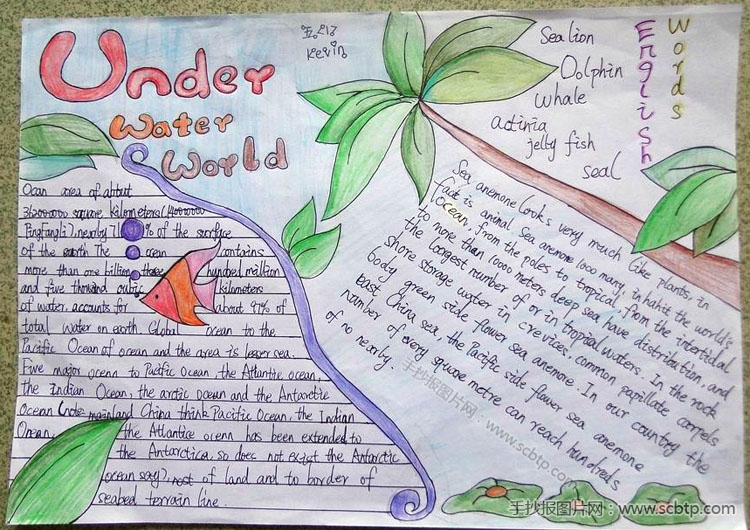 Under
Water
World
Kevin
English
Words
Sea lion
Dolphin
whale
actinia
jelly fish
seal
Ocan area of about
square kilometers
Pingfangli), nearby % of the surface
of the earth The ocean contains
more than one billion three hundred million
and five thousand cubic kilometers
of water, accounts for about 97% of
total water on earth. Global ocean to the
Pacific Ocean of ocean and the area is lesser sea.
Five major ocenn to Pacific Ocean, the Atlantic ocean,
the Indian Ocean, the arctic ocean and the Antarctic
Ocean (note mainland China think Pacific Ocean, the Indian
Ocean, the Atlantice ocenn has been extended to
the Antarctica, so does not exist the Antarctic
ocean say), most of land and to border of
seabed terrain line.
Sea anemone looks very much like plants, in
fact is animal Sea anemone 1000 many, in habit the world's
ocean, from the poles to tropical, from the intertidal
to more than 10000 meters deep sea have distribution, and
the largest number of or in tropical waters. In the rock
shore storage water in crevices, common papillate carpels
body green side flower sea anemore. In our country the
east China sea, the Pacific side flower sea anemone
number of every square metre can reach hundreds
of no nearby.
手抄报图片网：www.scbtp.com
手抄报图片网：www.scbtp.com